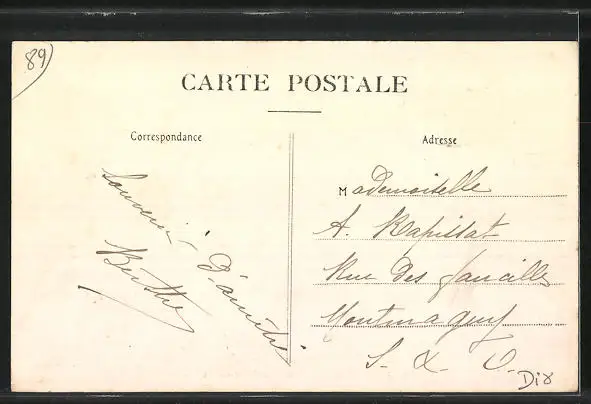 89
CARTE POSTALE
Correspondance
Souvenir d'amitié
Berthe
Adresse
Mademoiselle
A. Rapissat
Rue des
Montmagny
S. & O.